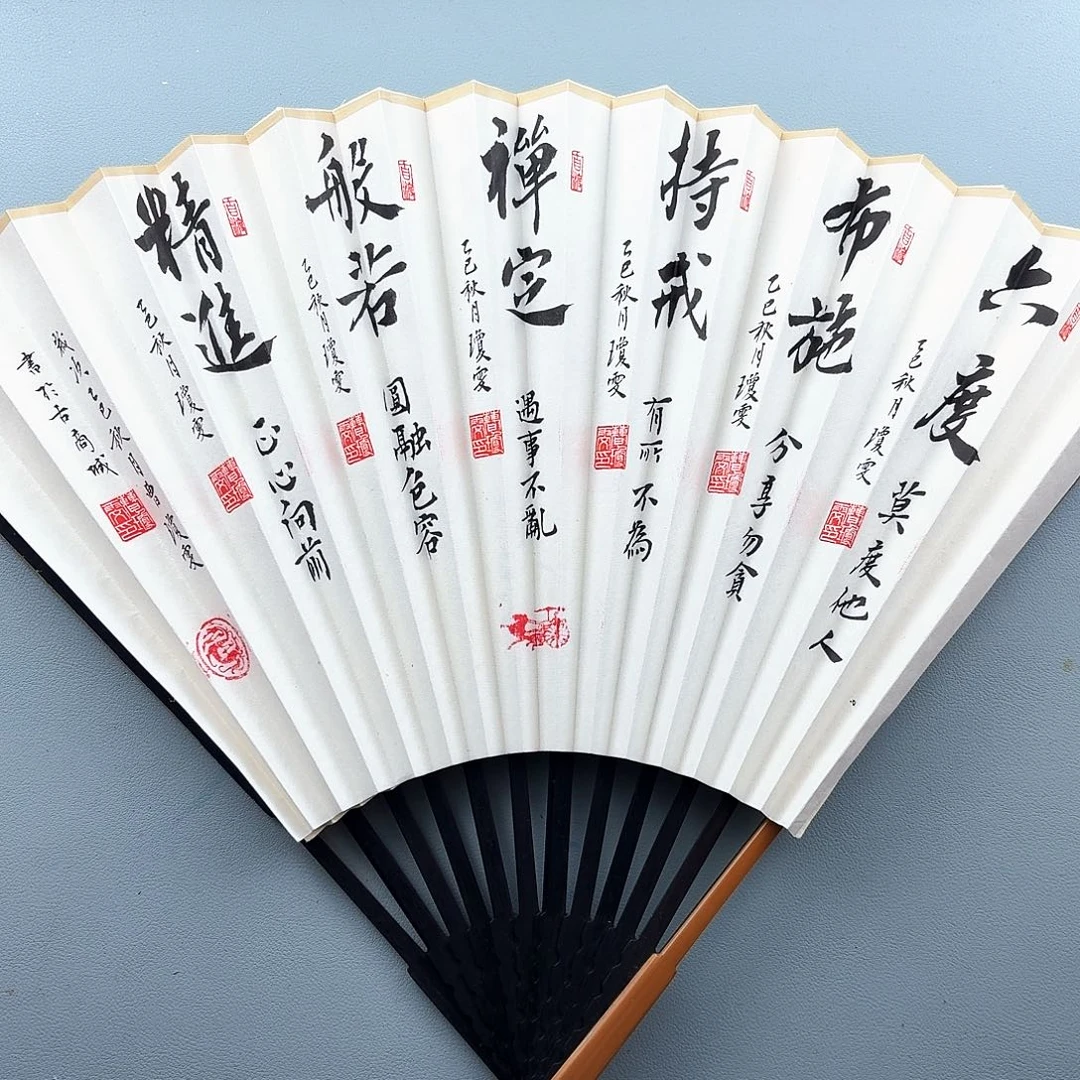 六度
莫度他人
乙巳秋月瓊雯
布施
分享勿貪
乙巳秋月瓊雯
持戒
有所不為
乙巳秋月瓊雯
禪定
遇事不亂
乙巳秋月瓊雯
般若
圓融包容
乙巳秋月瓊雯
精進
正心向前
乙巳秋月瓊雯
歲次乙巳秋月曹瓊雯
書於古商城